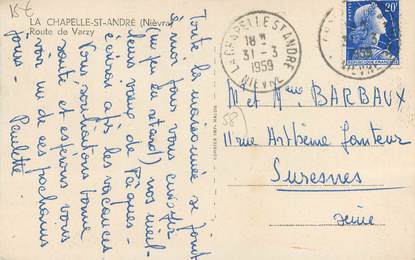 15 €
LA CHAPELLE-ST-ANDRÉ (Nièvre)
Route de Varzy
LA CHAPELLE ST ANDRE
18 H
31-3
1959
NIEVRE
20F
M et Mme BARBAUX
11 rue Arthème Genteur
Suresnes
Seine
58
Toute la maisonnée se joint
à moi pour vous envoyer
(un peu en retard) nos meil-
leurs vœux de Pâques -
écrirai après les vacances
Vous souhaitons bonne
santé et espérons vous
voir un de ces prochains
jours. Paulette